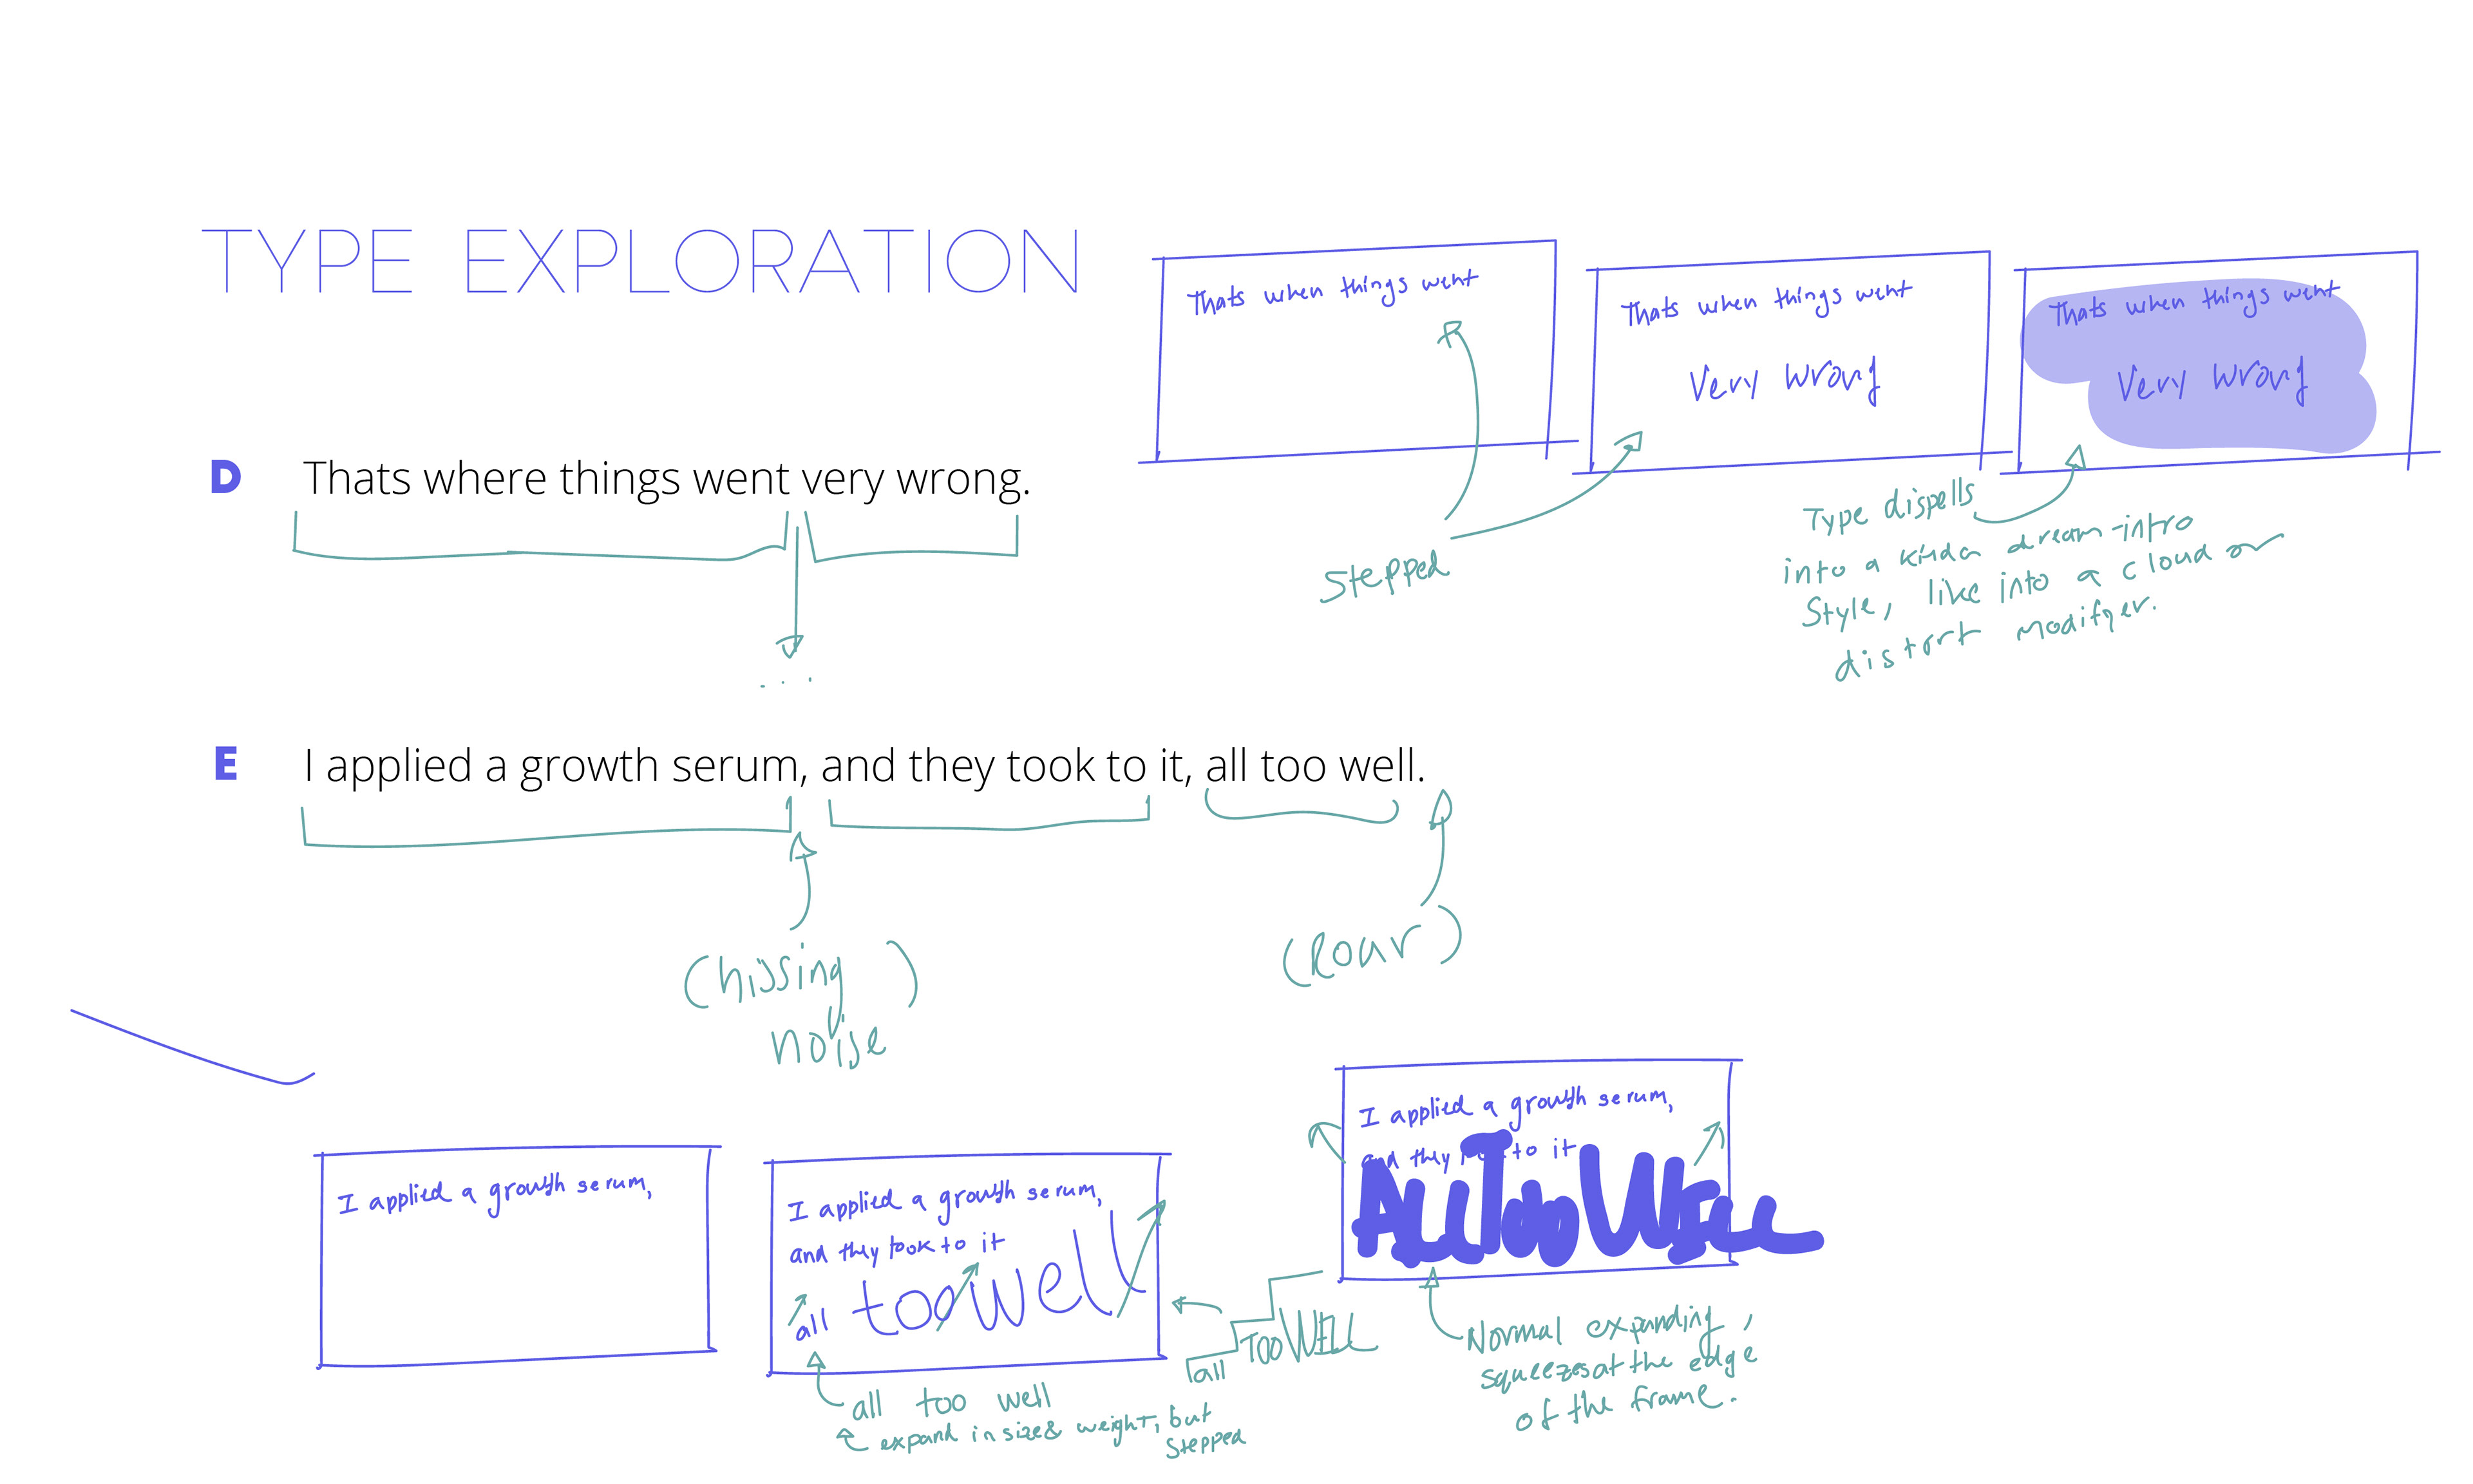 TYPE EXPLORATION
Thats when things went
Thats when things went
Very wrong
Thats when things went
Very wrong
D Thats where things went very wrong.
...
Stepped
Type dispells
into a kinda dream-intro
style, like into a cloud or
distort modifyer.
E I applied a growth serum, and they took to it, all too well.
(hissing
noise)
(Roar)
I applied a growth serum,
I applied a growth serum,
and they took to it
all too well
all too well
expand in size & weight, but
stepped
all Too WELL
I applied a growth serum,
and they took to it
ALL Too WELL
Normal expanding,
squeezes at the edge
of the frame.